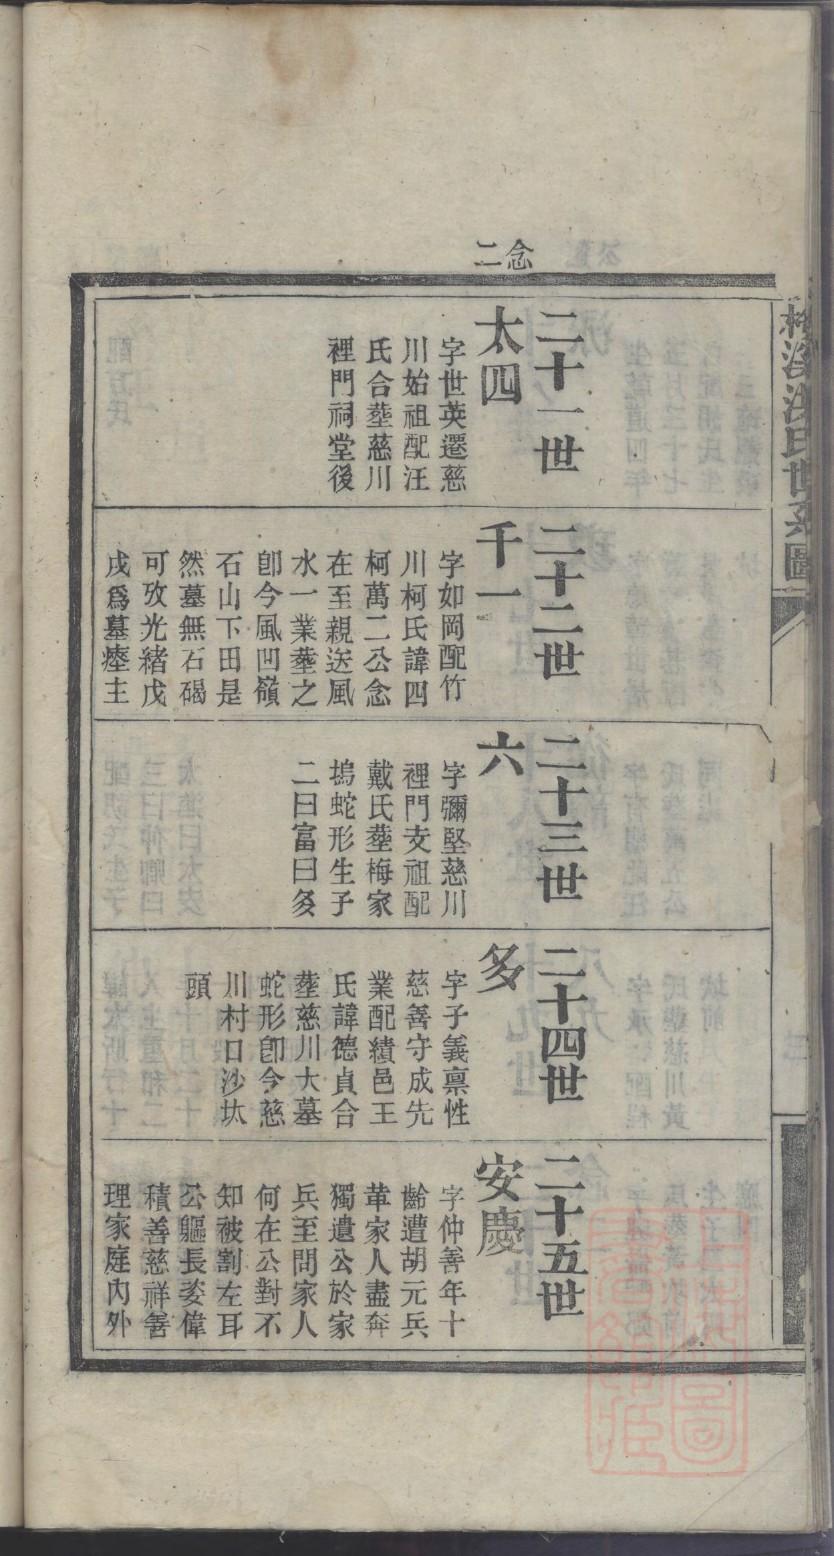 念二
二十一世
太四
字世英遷慈
川始祖配汪
氏合塟慈川
裡門祠堂後
二十二世
千一
字如岡配竹
川柯氏諱四
柯萬二公念
在至親送風
水一業塟之
卽今風凹嶺
石山下田是
然墓無石碣
可攷光緒戊
戌爲墓瘞主
二十三世
六
字彌堅慈川
裡門支祖配
戴氏塟梅家
塢蛇形生子
二曰富曰多
二十四世
多
字子義稟性
慈善守成先
業配績邑王
氏諱德貞合
塟慈川大墓
蛇形卽今慈
川村口沙坎
頭
二十五世
安慶
字仲善年十
齡遭胡元兵
革家人盡奔
獨遺公於家
兵至問家人
何在公對不
知被割左耳
公軀長姿偉
積善慈祥善
理家庭內外